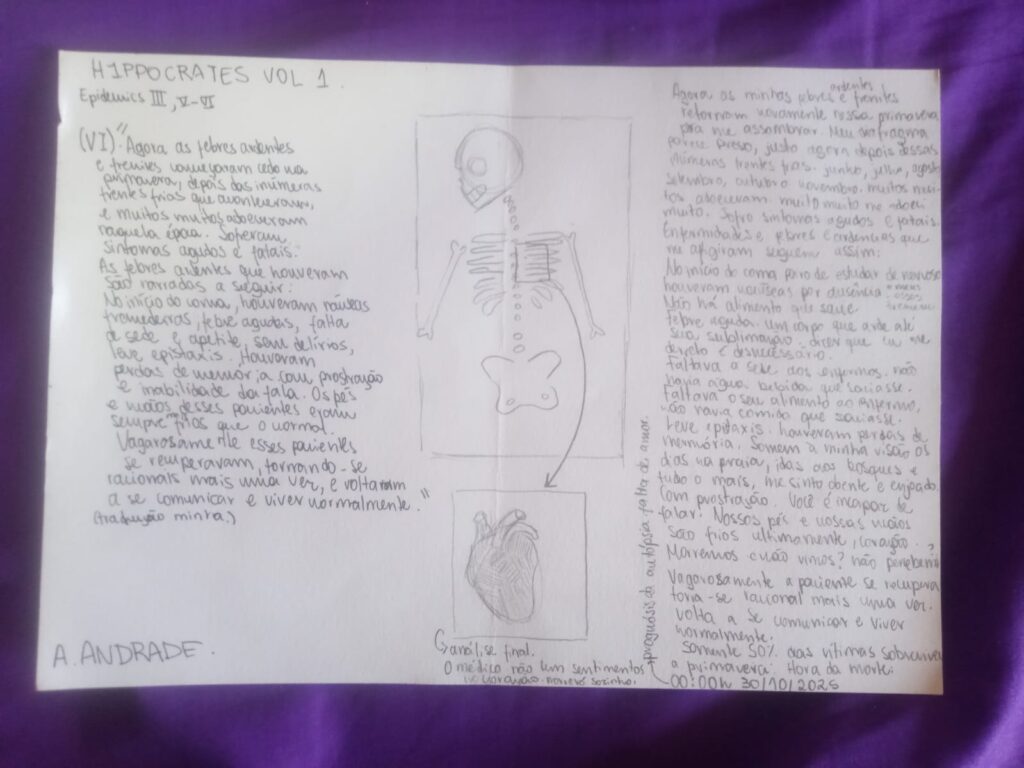 HIPPOCRATES VOL 1.
Epidemics III, V-VI
(VI) "Agora as febres ardentes
e frenites, começaram cedo na
primavera, depois das inúmeras
frentes frias que aconteceram,
e muitos muitos adoeceram
naquela época. Soferam
sintomas agudos e fatais:
As febres ardentes que houveram
são narradas a seguir:
No início do coma, houveram náuseas
tremedeiras, febre agudas, falta
de sede e apetite, sem delírios,
leve epistaxis. Houveram
perdas de memória com prostração
e inabilidade da fala. Os pés
e mãos desses pacientes eram
sempre mais frios que o normal.
Vagarosamente esses pacientes
se recuperavam, tornando-se
racionais mais uma vez, e voltaram
a se comunicar e viver normalmente."
(tradução minha.)
A. ANDRADE.
análise final.
O médico não tem sentimentos
no coração. morrerá sozinho.
prognósis da autópsia: falta de amor.
Agora as minhas febres ardentes e frenites
retornam novamente nessa primavera
pra me assombrar. Meu diafragma
parece preso, justo agora depois dessas
inúmeras frentes frias. junho, julho, agosto
setembro, outubro novembro. muitos
adoeceram. muito muito me adoeci
muito. Sofro sintomas agudos e fatais.
Enfermidades e febres e ardências que
me afligiram seguem assim:
No início do coma paro de estudar de nervoso
houveram náuseas por ausência
Não há alimento que salve
febre aguda. um corpo que arde até
sua sublimação. dizer que eu me
derreto é desnecessário.
faltava a sede aos enfermos. não
havia água bebida que saciasse.
faltava o seu alimento ao enfermo,
não havia comida que saciasse.
leve epistaxis. houveram perdas de
memória. Somem à minha visão os
dias na praia, idas aos bosques e
tudo o mais, me sinto doente e
Com prostração. Você é incapaz de
falar! Nossos pés e nossas mãos
são frios ultimamente, coração.
Morremos e não vimos? não percebemos
Vagarosamente a paciente se recupera
torna-se racional mais uma vez.
volta a se comunicar e viver
normalmente.
Somente 50% das vítimas sobrevive
a primavera. Hora da morte:
00:00h 30/10/2025